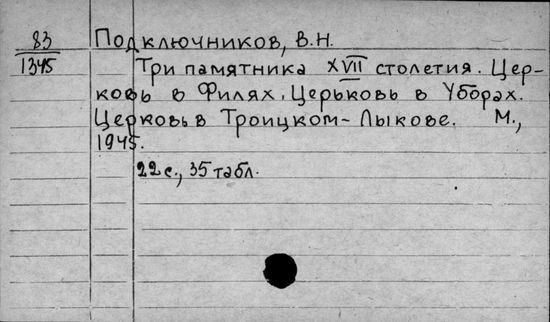 83 Подключников, В.Н.
1345 Три памятника XVII столетия. Цер-
ковь в Филях. Церьковь в Уборах.
Церковь в Троицком-Лыкове. М.,
1945.
22 с., 35 табл.